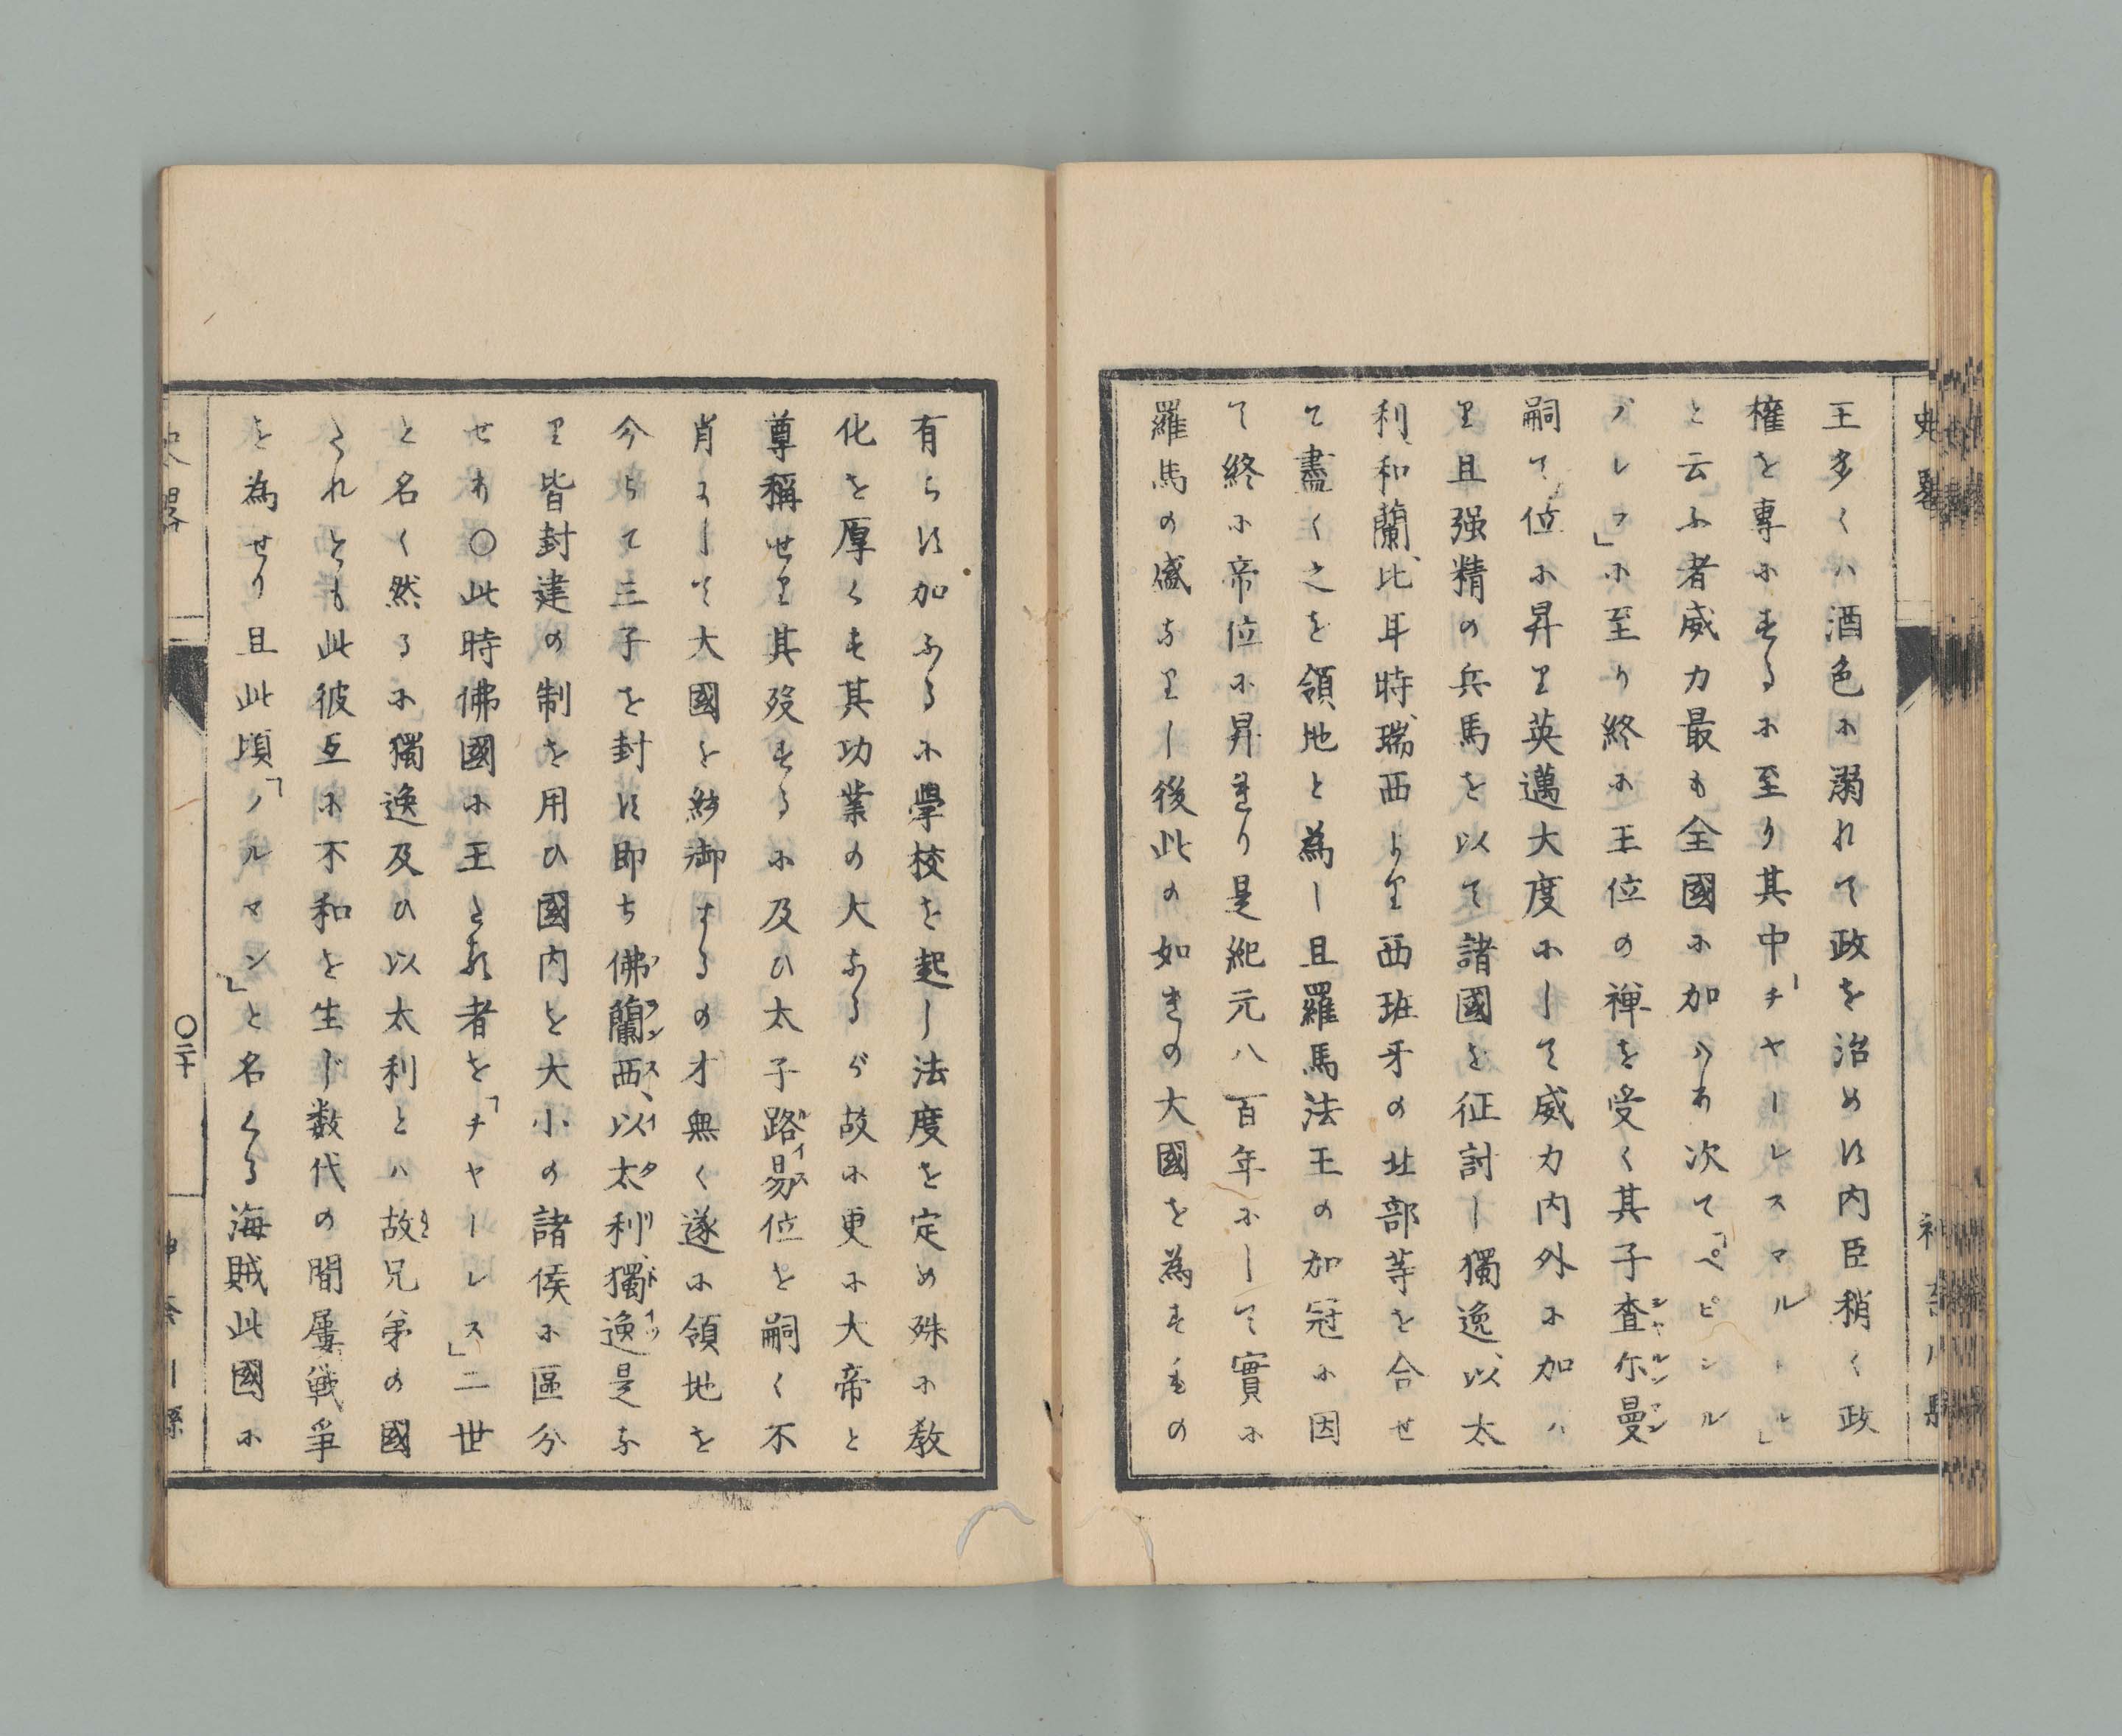 王多くハ酒色に溺れて政を治めす内臣稍く政
権を専にするに至り其中「チヤーレスマルトル」
と云ふ者威力最も全國に加ハれり次て「ペピンル
ブレフ」に至り終に王位の禅を受く其子査尓曼
嗣て位に昇り英邁大度にして威力内外に加ハ
り且强精の兵馬を以て諸國を征討し獨逸、以太
利、和蘭、比耳時、瑞西より西班牙の北部等を合せ
て盡く之を領地と為し且羅馬法王の加冠に因
て終に帝位に昇れり是紀元八百年にして實に
羅馬の盛なりし後此の如きの大國を為すもの
有らす加ふるに學校を起し法度を定め殊に教
化を厚くす其功業の大なるが故に更に大帝と
尊稱せり其歿するに及ひ太子路易位を嗣く不
肖にして大國を紛御するの才無く遂に領地を
今らて三子を封す即ち佛蘭西、以太利、獨逸是な
り皆封建の制を用ひ國内を大小の諸侯に區分
せり〇此時佛國に王たる者を「チヤーレス」二世
と名く然るに獨逸及ひ以太利とハ故兄弟の國
たれとも此彼互に不和を生じ数代の間屢戦爭
を為せり且此頃「ノルマン」と名くる海賊此國に
史畧
〇二十